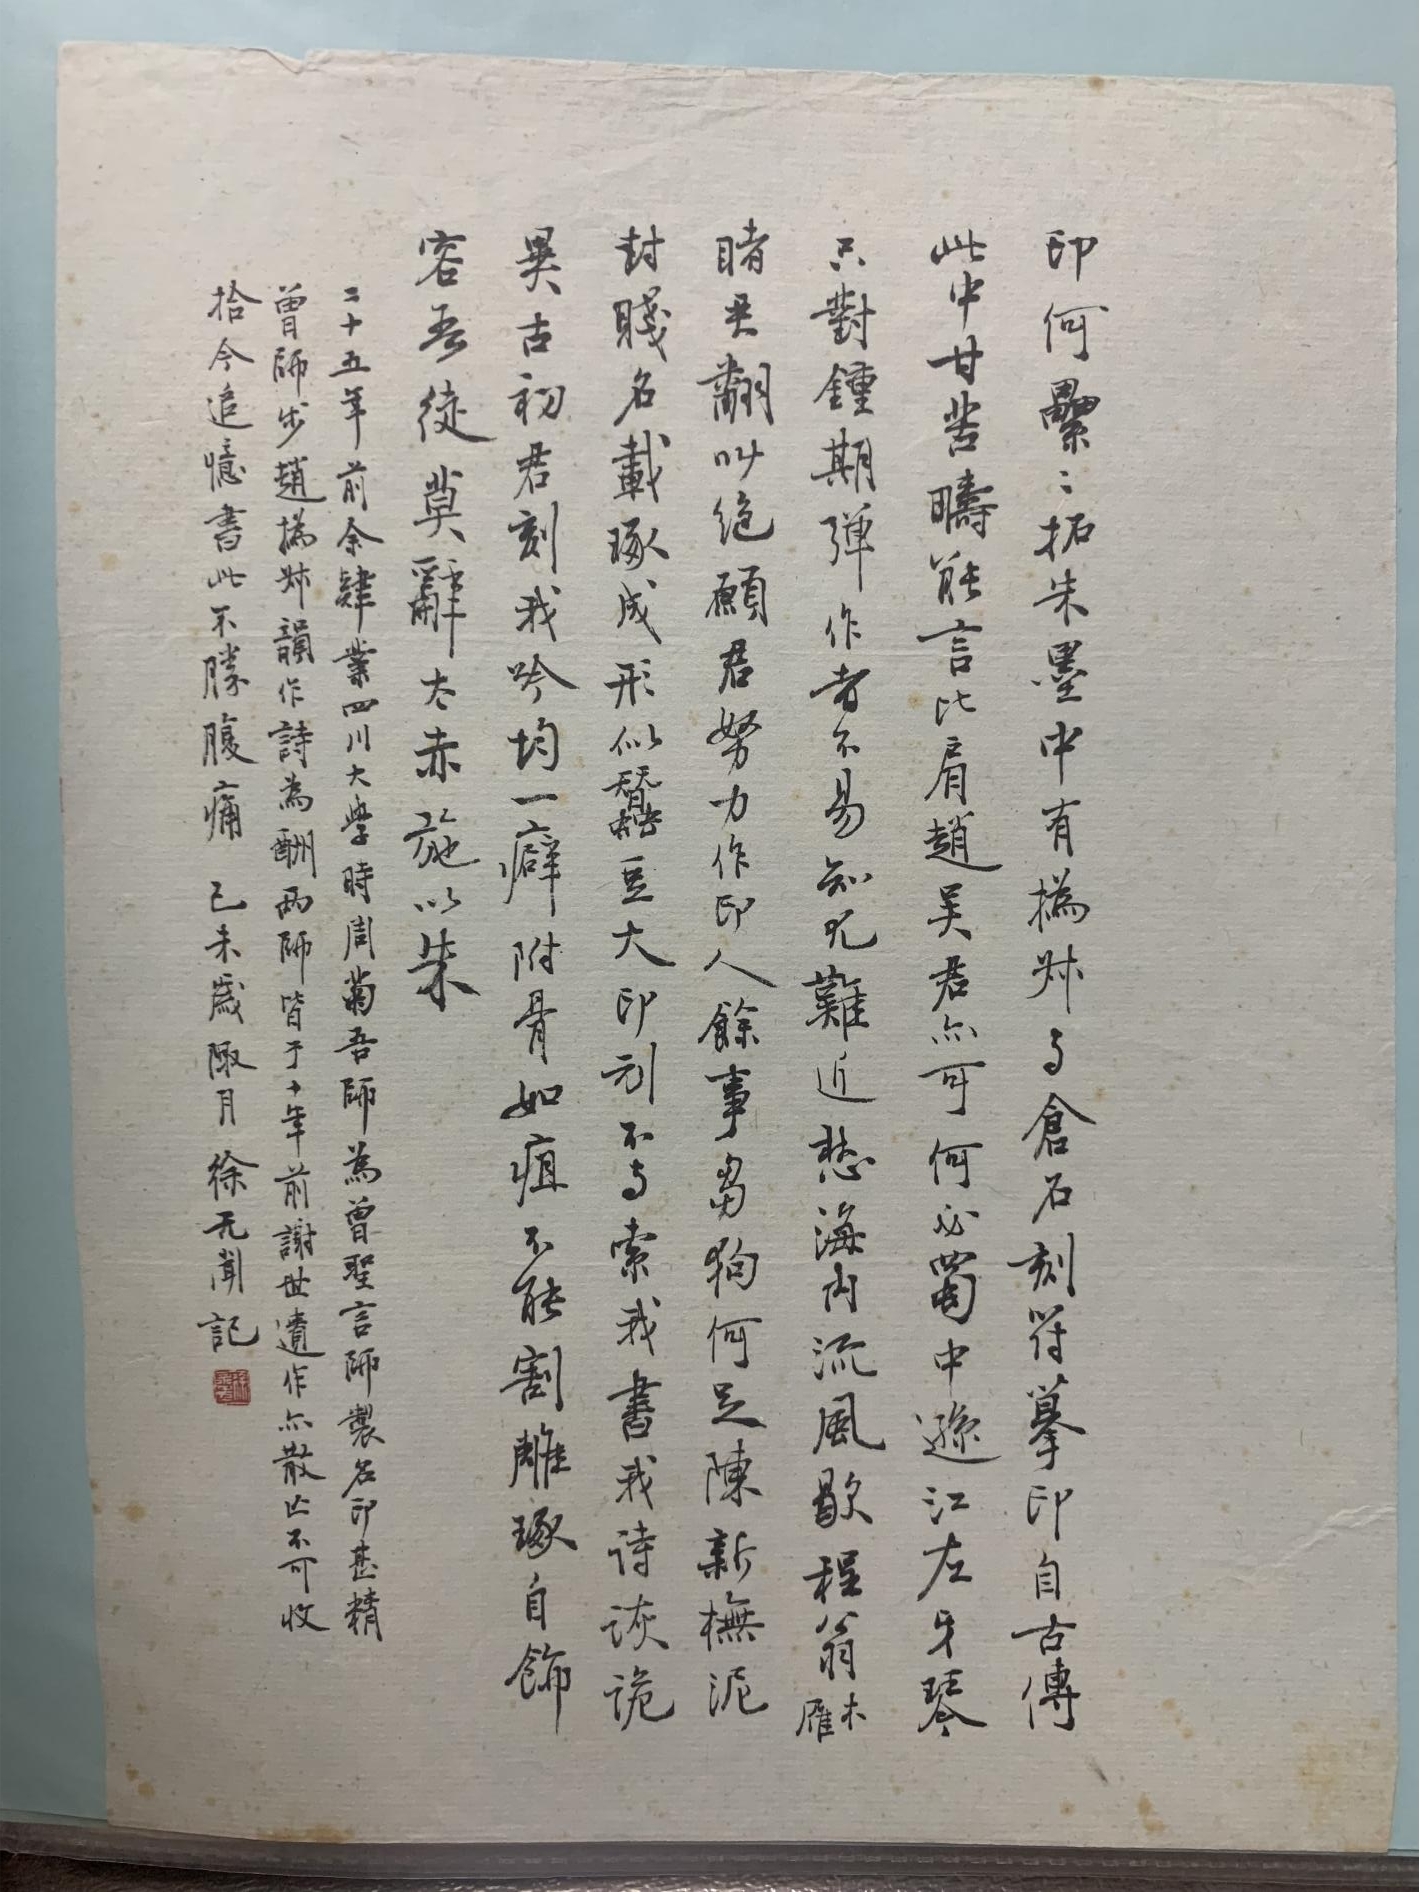 印何纍〻拓朱墨中有撝叔与倉石刻符摹印自古傳
此中甘苦疇能言比肩趙吴君亦可何必蜀中遜江左牙琴
只對鍾期彈作者不易知尤難近愁海内流風歇程翁木雁
睹君翻叫絶願君努力作印人餘事芻狗何足陳新橅泥
封賤名載琢成形似豆大印刓不与索我書我诗詼詭
異古初君刻我吟均一癖附骨如疽不能割雕琢自飾
容吾徒莫辭太赤施以朱
二十五年前余肄業四川大學時周菊吾師為曾聖言師製名印甚精
曾師步趙撝叔韻作詩為酬兩師皆于十年前謝世遺作亦散亡不可收
拾今追憶書此不勝腹痛 己未歲陬月徐无聞記